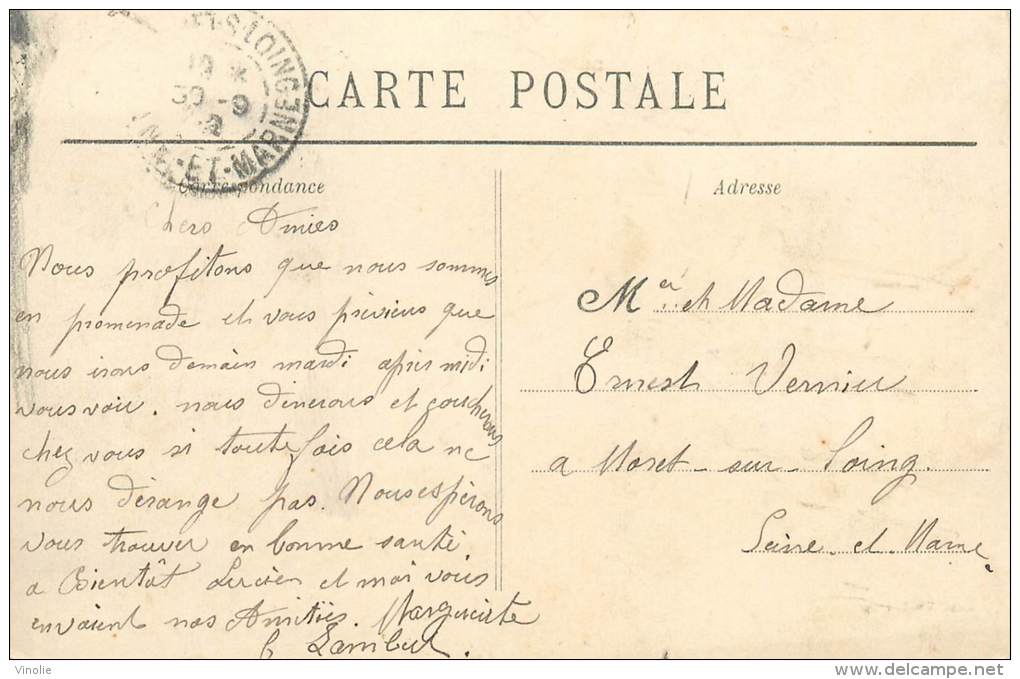 CARTE POSTALE
Correspondance
Adresse
T-S-LOING
30 -9
ET-MARNE
Chers Amies
Nous profitons que nous sommes
en promenade et vous préviens que
nous irons demain mardi après midi
vous voir. nous dinerons et goucherons
chez vous si toute fois cela ne
nous dérange pas. Nous espérons
vous trouver en bonne santé.
a Bientât Lucien et moi vous
envoient nos Amitiés. Marguerite
Lambert.
Mer et Madame
Ernest Vernier
a Moret-sur-Loing.
Seine-et-Marne
Vinolie
delcampe.net